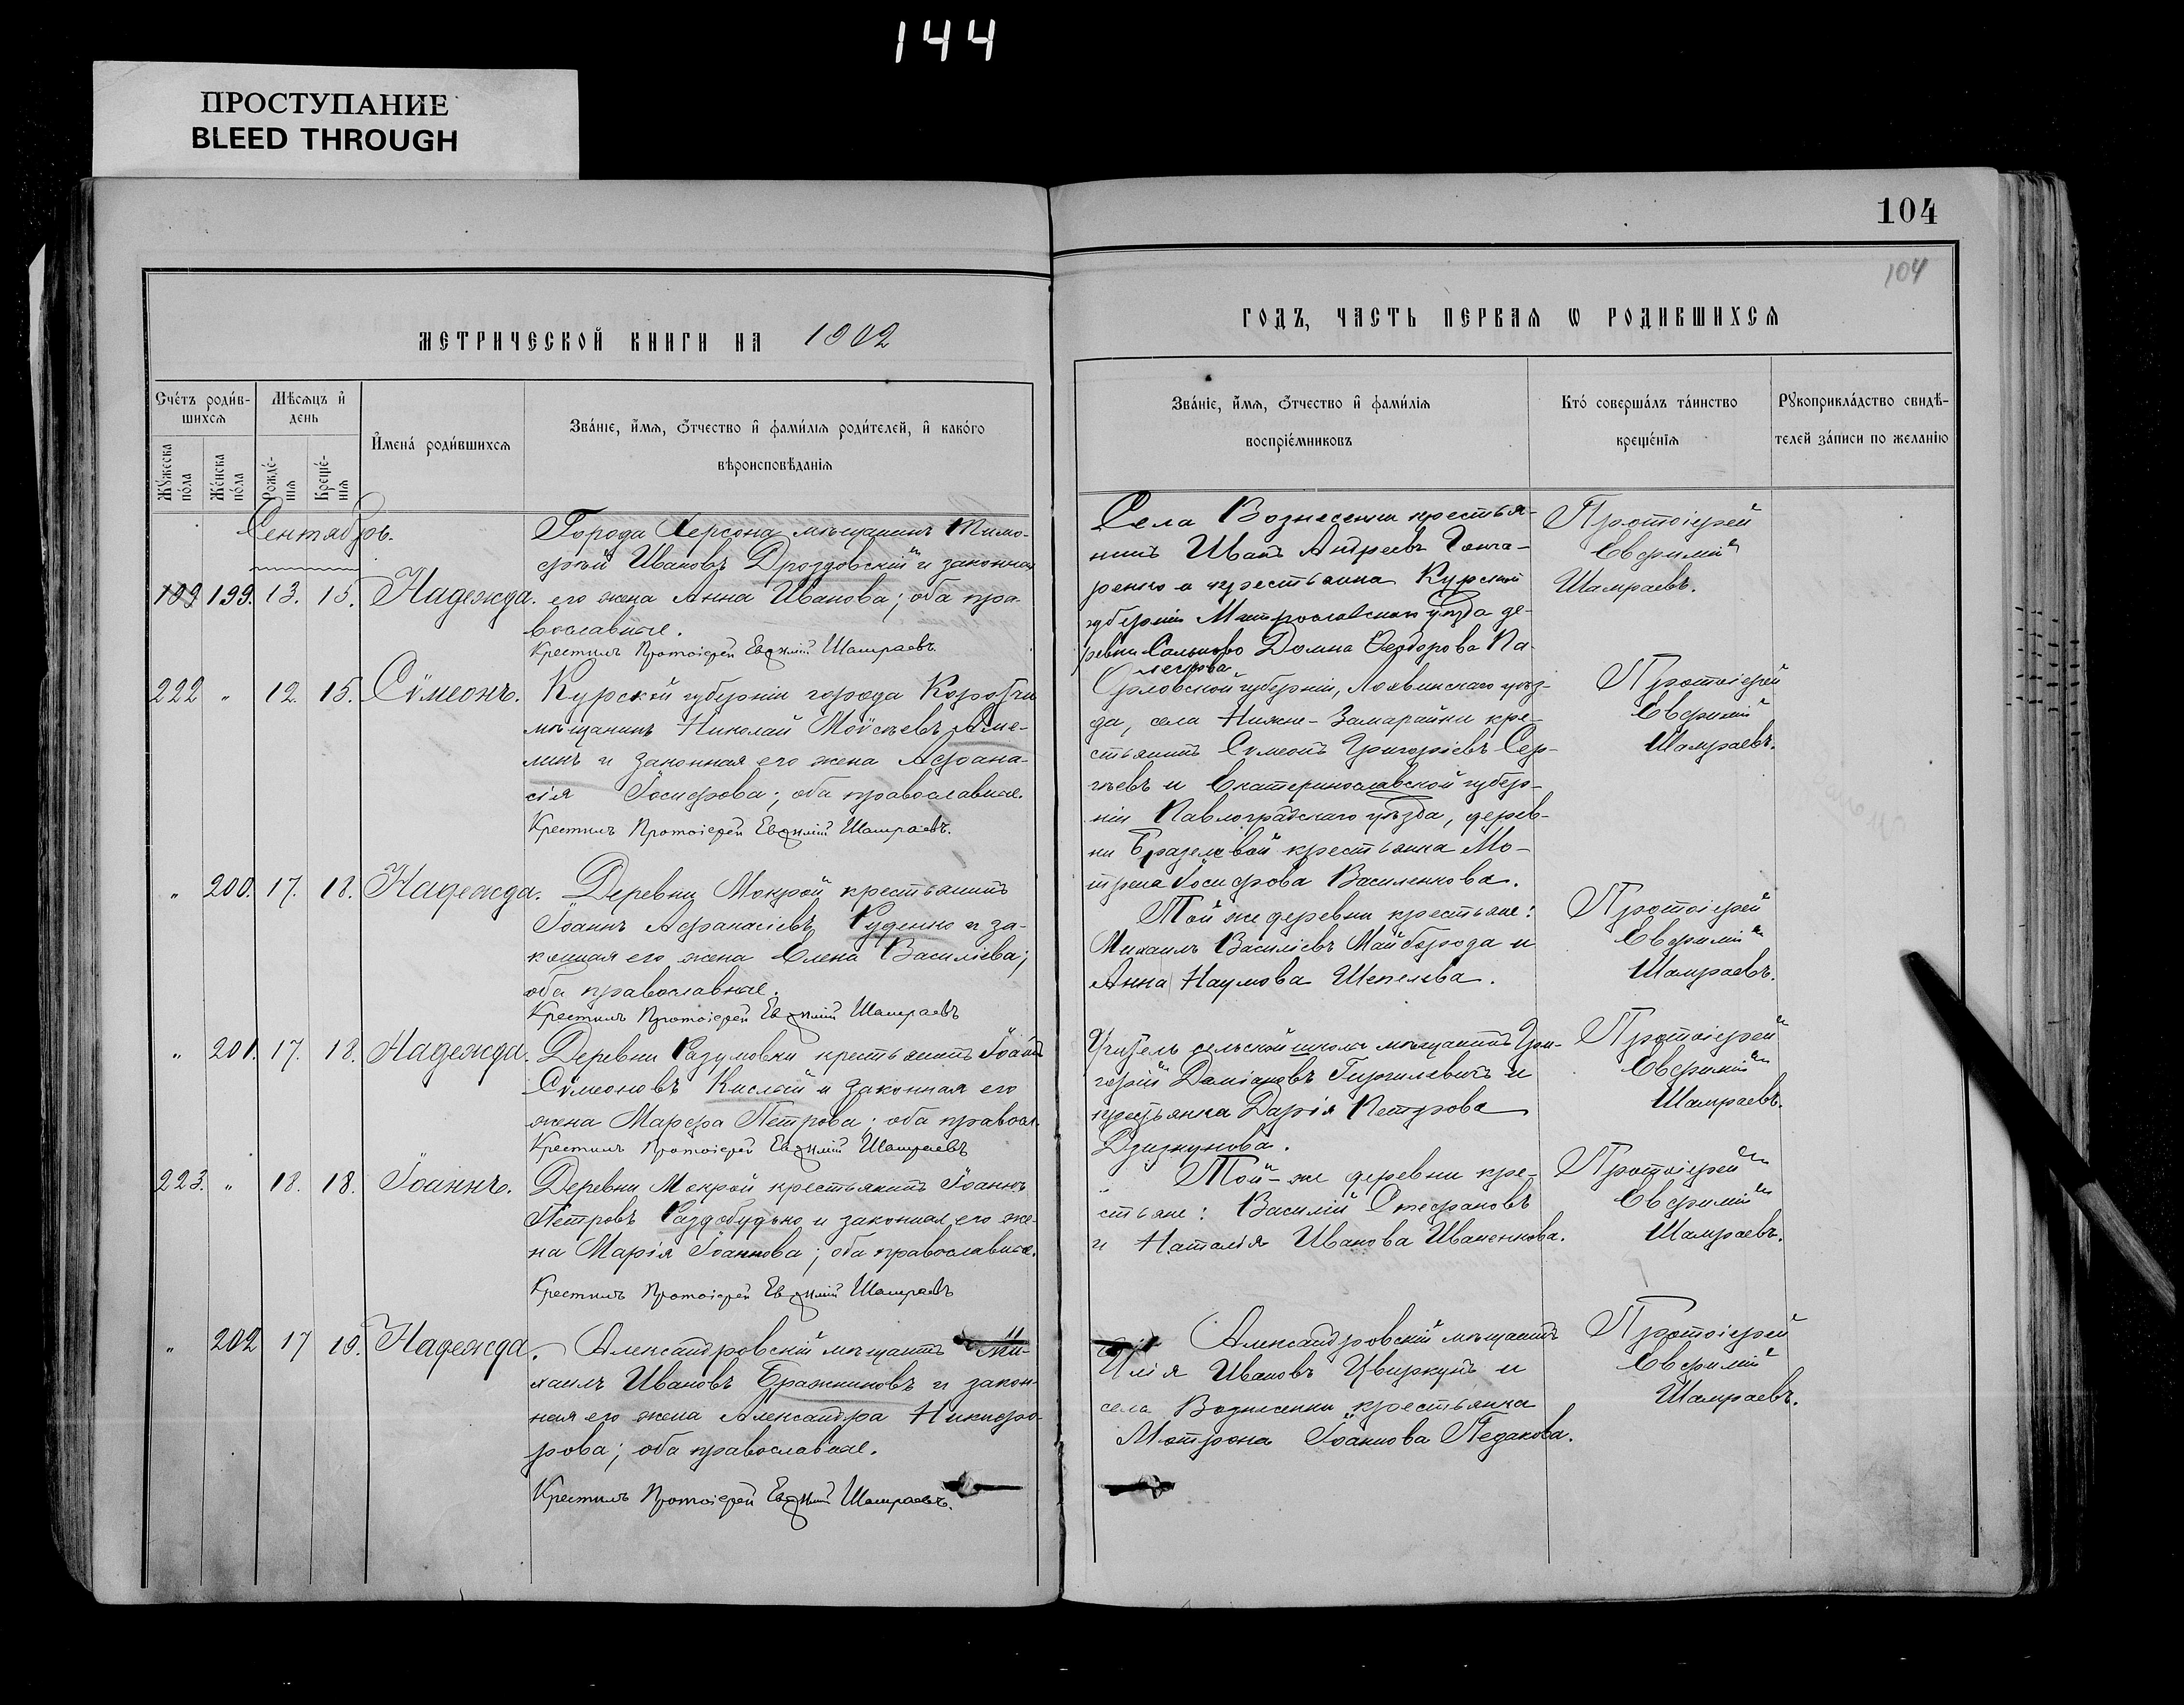 144
ПРОСТУПАНИЕ
BLEED THROUGH
104
104
МЕТРИЧЕСКОЙ КНИГИ НА 1902
ГОДЪ, ЧАСТЬ ПЕРВАЯ Ѡ РОДИВШИХСЯ
Сче́тъ роди́в-
шихсѧ
Мѣсѧцъ и҆
день
Мꙋ́жеска
по́ла
Же́нска
по́ла
Рожде́-
нїѧ
Креще́-
нїѧ
И҆мена́ роди́вшихсѧ
Зва́нїе, и҆́мѧ, ѻ҆́тчество и҆ фами́лїѧ роди́телей, и҆ како́гѡ
вѣроисповѣ́данїѧ
Зва́нїе, и҆́мѧ, ѻ҆́тчество и҆ фами́лїѧ
воспрїе́мниковъ
Кто̀ соверша́лъ та́инство
креще́нїѧ
Рꙋкоприкла́дство свидѣ́-
телей за́писи по жела́нїю
Сентябрь.
199. 13. 15. Надежда.
Города Херсона мѣщанинъ Тимо-
фей Ивановъ Дроздовскій и законная
его жена Анна Иванова; оба пра-
вославные.
Крестилъ Протоіерей Евѳимій Шамраевъ.
Села Вознесенки крестья-
нинъ Иванъ Андреевъ Гонча-
ренко и крестьянка Курской
губерніи уѣзда де-
ревни Сальково Домна Ѳеодорова Па-
Протоіерей
Евфимій
Шамраевъ.
222 " 12. 15. Сѵмеонъ.
Курской губерніи города Корочи
мѣщанинъ Николай Моѵсѣевъ Аме-
линъ и законная его жена Афана-
сія Іосифова; оба православные.
Крестилъ Протоіерей Евѳимій Шамраевъ.
Орловской губерніи, уѣз-
да, села Нижне-Замарайки кре-
стьянинъ Сѵмеонъ Григоріевъ Сер-
гѣевъ и Екатеринославской губер-
ніи Павлоградскаго уѣзда, дерев-
ни крестьянка Мо-
трена Іосифова Василенкова.
Протоіерей
Евфимій
Шамраевъ.
" 200. 17. 18. Надежда.
Деревни Мокрой крестьянинъ
Іоаннъ Афанасіевъ Руденко и за-
конная его жена Елена Василіева;
оба православные.
Крестилъ Протоіерей Евѳимій Шамраевъ
Той же деревни крестьяне:
Михаилъ Василіевъ Майборода и
Анна Наумова Шепелева.
Протоіерей
Евфимій
Шамраевъ.
" 201. 17. 18. Надежда.
Деревни Разумовки крестьянинъ Іоаннъ
Сѵмеоновъ Кислый и законная его
жена Марфа Петрова; оба правосл.
Крестилъ Протоіерей Евѳимій Шамраевъ
Учитель сельской школы мѣщанинъ Гри-
горій Даміановъ и
крестьянка Дарія Петрова
Протоіерей
Евфимій
Шамраевъ.
223. " 18. 18. Іоаннъ.
Деревни Мокрой крестьянинъ Іоаннъ
Петровъ Раздобудько и законная его же-
на Марія Іоаннова; оба православные.
Крестилъ Протоіерей Евѳимій Шамраевъ
" Той-же деревни кре-
стьяне: Василій Стефановъ
и Наталія Иванова Иваненкова.
Протоіерей
Евфимій
Шамраевъ.
" 202 17 19. Надежда.
Александровскій мѣщанинъ Ми-
хаилъ Ивановъ Бражниковъ и закон-
ная его жена Александра Никифо-
рова; оба православные.
Крестилъ Протоіерей Евѳимій Шамраевъ.
Александровскій мѣщанинъ
Илія Ивановъ Цвиркунъ и
села Вознесенки крестьянка
Мотрона Іоаннова Педакова.
Протоіерей
Евфимій
Шамраевъ.